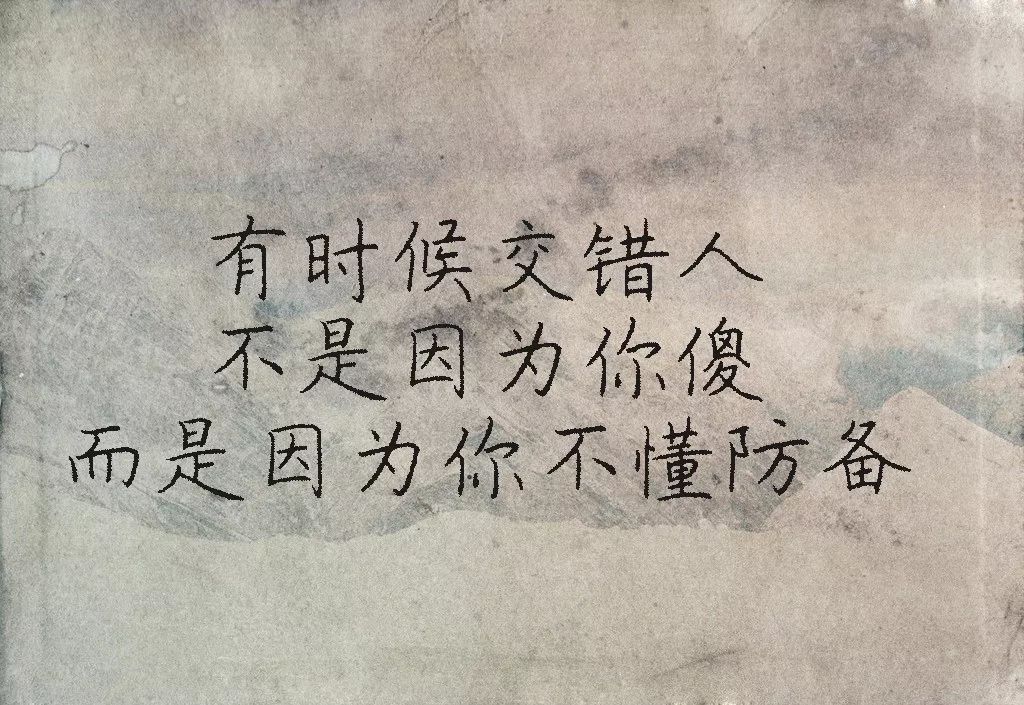 有时候交错人
不是因为你傻
而是因为你不懂防备